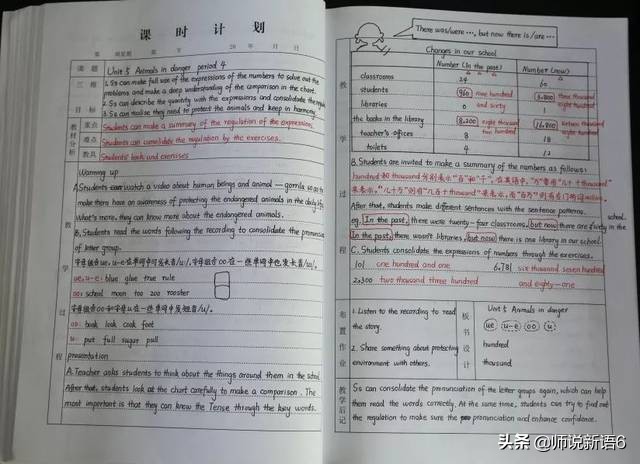 课 时 计 划
第 周星期 第 节 20 年 月 日
课 题 Unit 5 Animals in danger period 4
三维目标
1. Ss can make full use of the expressions of the numbers to solve out the
problems and make a deep understanding of the comparison in the chart.
2. Ss can describe the quantity with the expressions and consolidate the
3. Ss can realise they need to protect the animals and keep in harmony.
教材分析
重点 Students can make a summary of the regulation of the expressions.
难点 Students can consolidate the regulation by the exercises.
教具 Students' book and exercises
教学过程
Warming up
A. Students can watch a video about human beings and animal — gorilla so as to
make them have an awareness of protecting the endangered animals in the daily life.
What's more, they can know more about the endangered animals.
B. Students read the words following the recording to consolidate the pronunciation
of letter group.
字母组合ue, u-e在单词中可发长音/u:/,字母组合oo在一些单词中也发长音/u:/.
ue, u-e: blue glue true rule
oo: school moon too zoo rooster
字母组合oo和字母u在一些单词中发短音/u/.
oo: book look cook foot
u: put full sugar pull
presentation
A. Teacher asks students to think about the things around them in the school.
After that, students look at the chart carefully to make a comparison. The
most important is that they can know the Tense through the key words.
There was/were ..., but now there is/are ...
Changes in our school
Number (In the past) Number (now)
classrooms 24 60
students 960 nine hundred and sixty 3,800 three thousand eight hundred
libraries 0
the books in the library 8,200 eight thousand two hundred 16,800 sixteen thousand eight hundred
teacher's offices 8 18
toilets 4 12
教学过程
B. Students are invited to make a summary of the numbers as follows:
After that, students make different sentences with the sentence patterns.
eg. In the past, there were twenty-four classrooms, but now there are sixty in the school.
In the past, there wasn't libraries, but now there is one library in our school.
C. Students consolidate the expressions of numbers through the exercises.
101 one hundred and one 6,781 six thousand seven hundred
2,300 two thousand three hundred and eighty-one
布置作业
1. Listen to the recording to read
the story.
2. Share something about protecting
environment with others.
板书设计
Unit 5 Animals in danger
ue u-e oo u
hundred
thousand
教学后记
Ss can consolidate the pronunciation of the letter groups again, which can help
them read the words correctly. At the same time, students can try to find out
the regulation to make sure the pronunciation and enhance confidence.
头条 @师说新语6